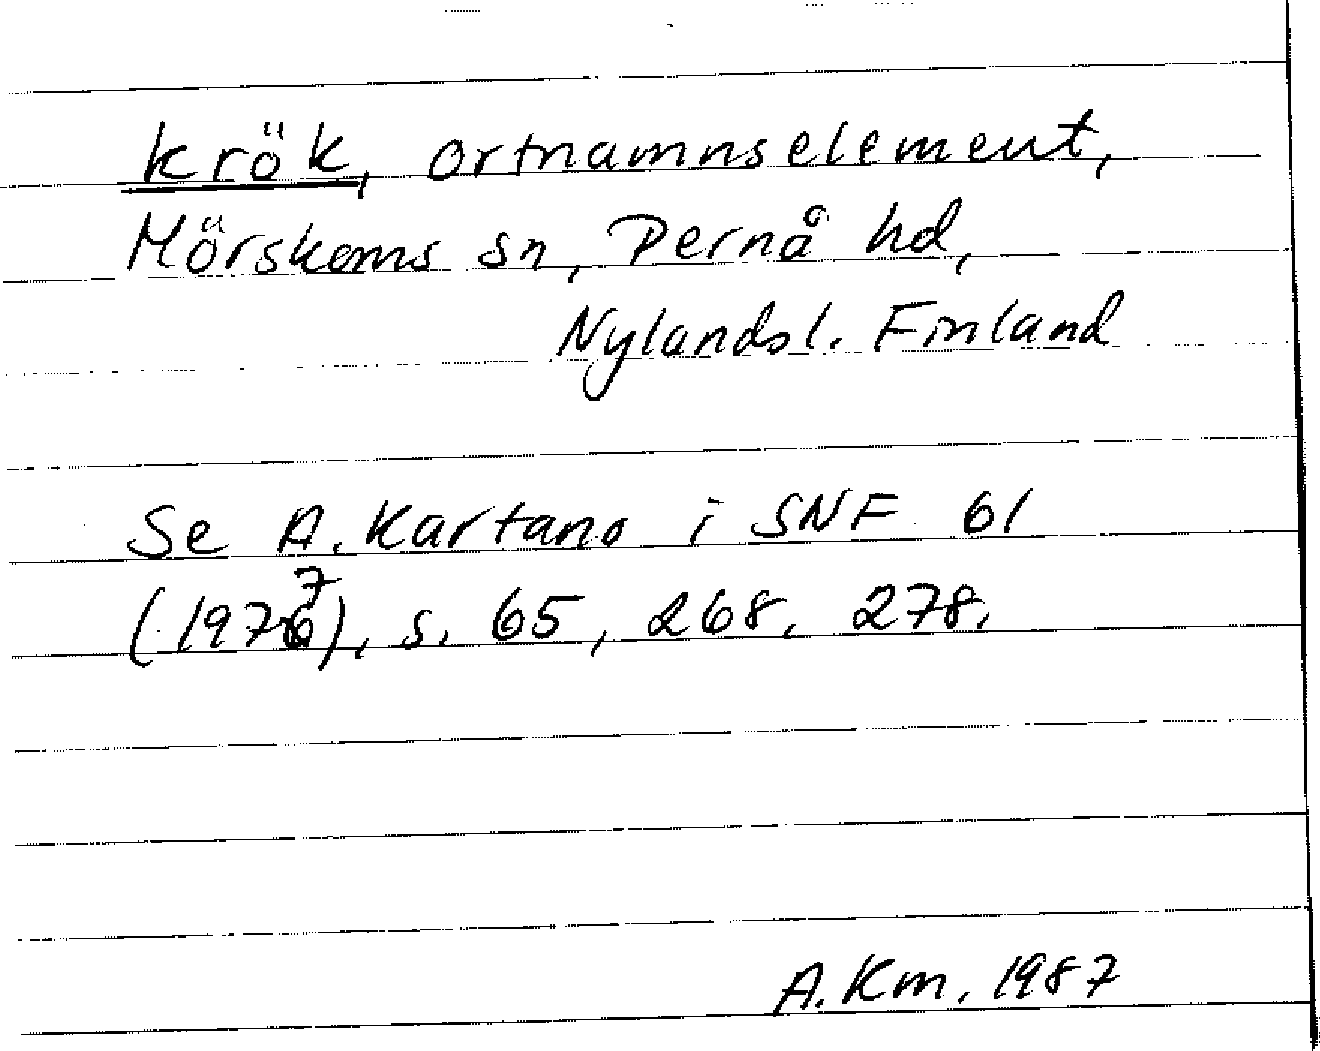 krök, ortnamnselement,
Mörskoms sn, Pernå hd,
Nylandsl. Finland
Se A. Kartano i SNF 61
(1977), s. 65, 268, 278.
A. Km. 1987